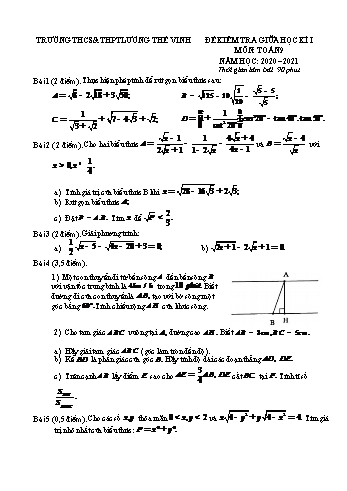 TRƯỜNG THCS& THPT LƯƠNG THẾ VINH
ĐỀ KIỂM TRA GIỮA HỌC KÌ I
MÔN TOÁN 9
NĂM HỌC: 2020 – 2021
Thời gian làm bài: 90 phút
Bài 1 (2 điểm). Thực hiện phép tính để rút gọn biểu thức sau:
A = √8 - 2√18 + 3√50;
B = √125 - 10√(1/20) - (√5 - 5)/√5;
C = 1/(√3 + √2) + √(7 - 4√3) + √2;
Bài 2 (2 điểm). Cho hai biểu thức A = (√x - 1)/(2√x + 1) - 1/(1 - 2√x) - (4√x + 4)/(4x - 1) và B = (√x - 4)/√x với
x > 0, x ≠ 1/4.
a) Tính giá trị của biểu thức B khi x = √(28 - 16√3) + 2√3;
b) Rút gọn biểu thức A;
c) Đặt P = A.B. Tìm x để √P < 2/3.
Bài 3 (2 điểm). Giải phương trình:
b) √(2x + 1) - 2√x + 1 = 0.
Bài 4 (3,5 điểm).
1) Một con thuyền đi từ bến sông A đến bến sông B
với vận tốc trung bình là 4km / h trong 10 phút. Biết
đường đi của con thuyền là AB, tạo với bờ sông một
góc bằng 60°. Tính chiều rộng AH của khúc sông.
A
B H
2) Cho tam giác ABC vuông tại A, đường cao AH. Biết AB = 3cm, BC = 5cm.
a) Hãy giải tam giác ABC (góc làm tròn đến độ).
b) Kẻ BD là phân giác của góc B. Hãy tính độ dài các đoạn thẳng AD, DE.
c) Trên cạnh AB lấy điểm E sao cho AE = 3/4 AB, DE cắt BC tại F. Tính tỉ số
Bài 5 (0,5 điểm). Cho các số x, y thỏa mãn 0 < x, y < 2 và x√(4 - y²) + y√(4 - x²) = 4. Tìm giá
trị nhỏ nhất của biểu thức: